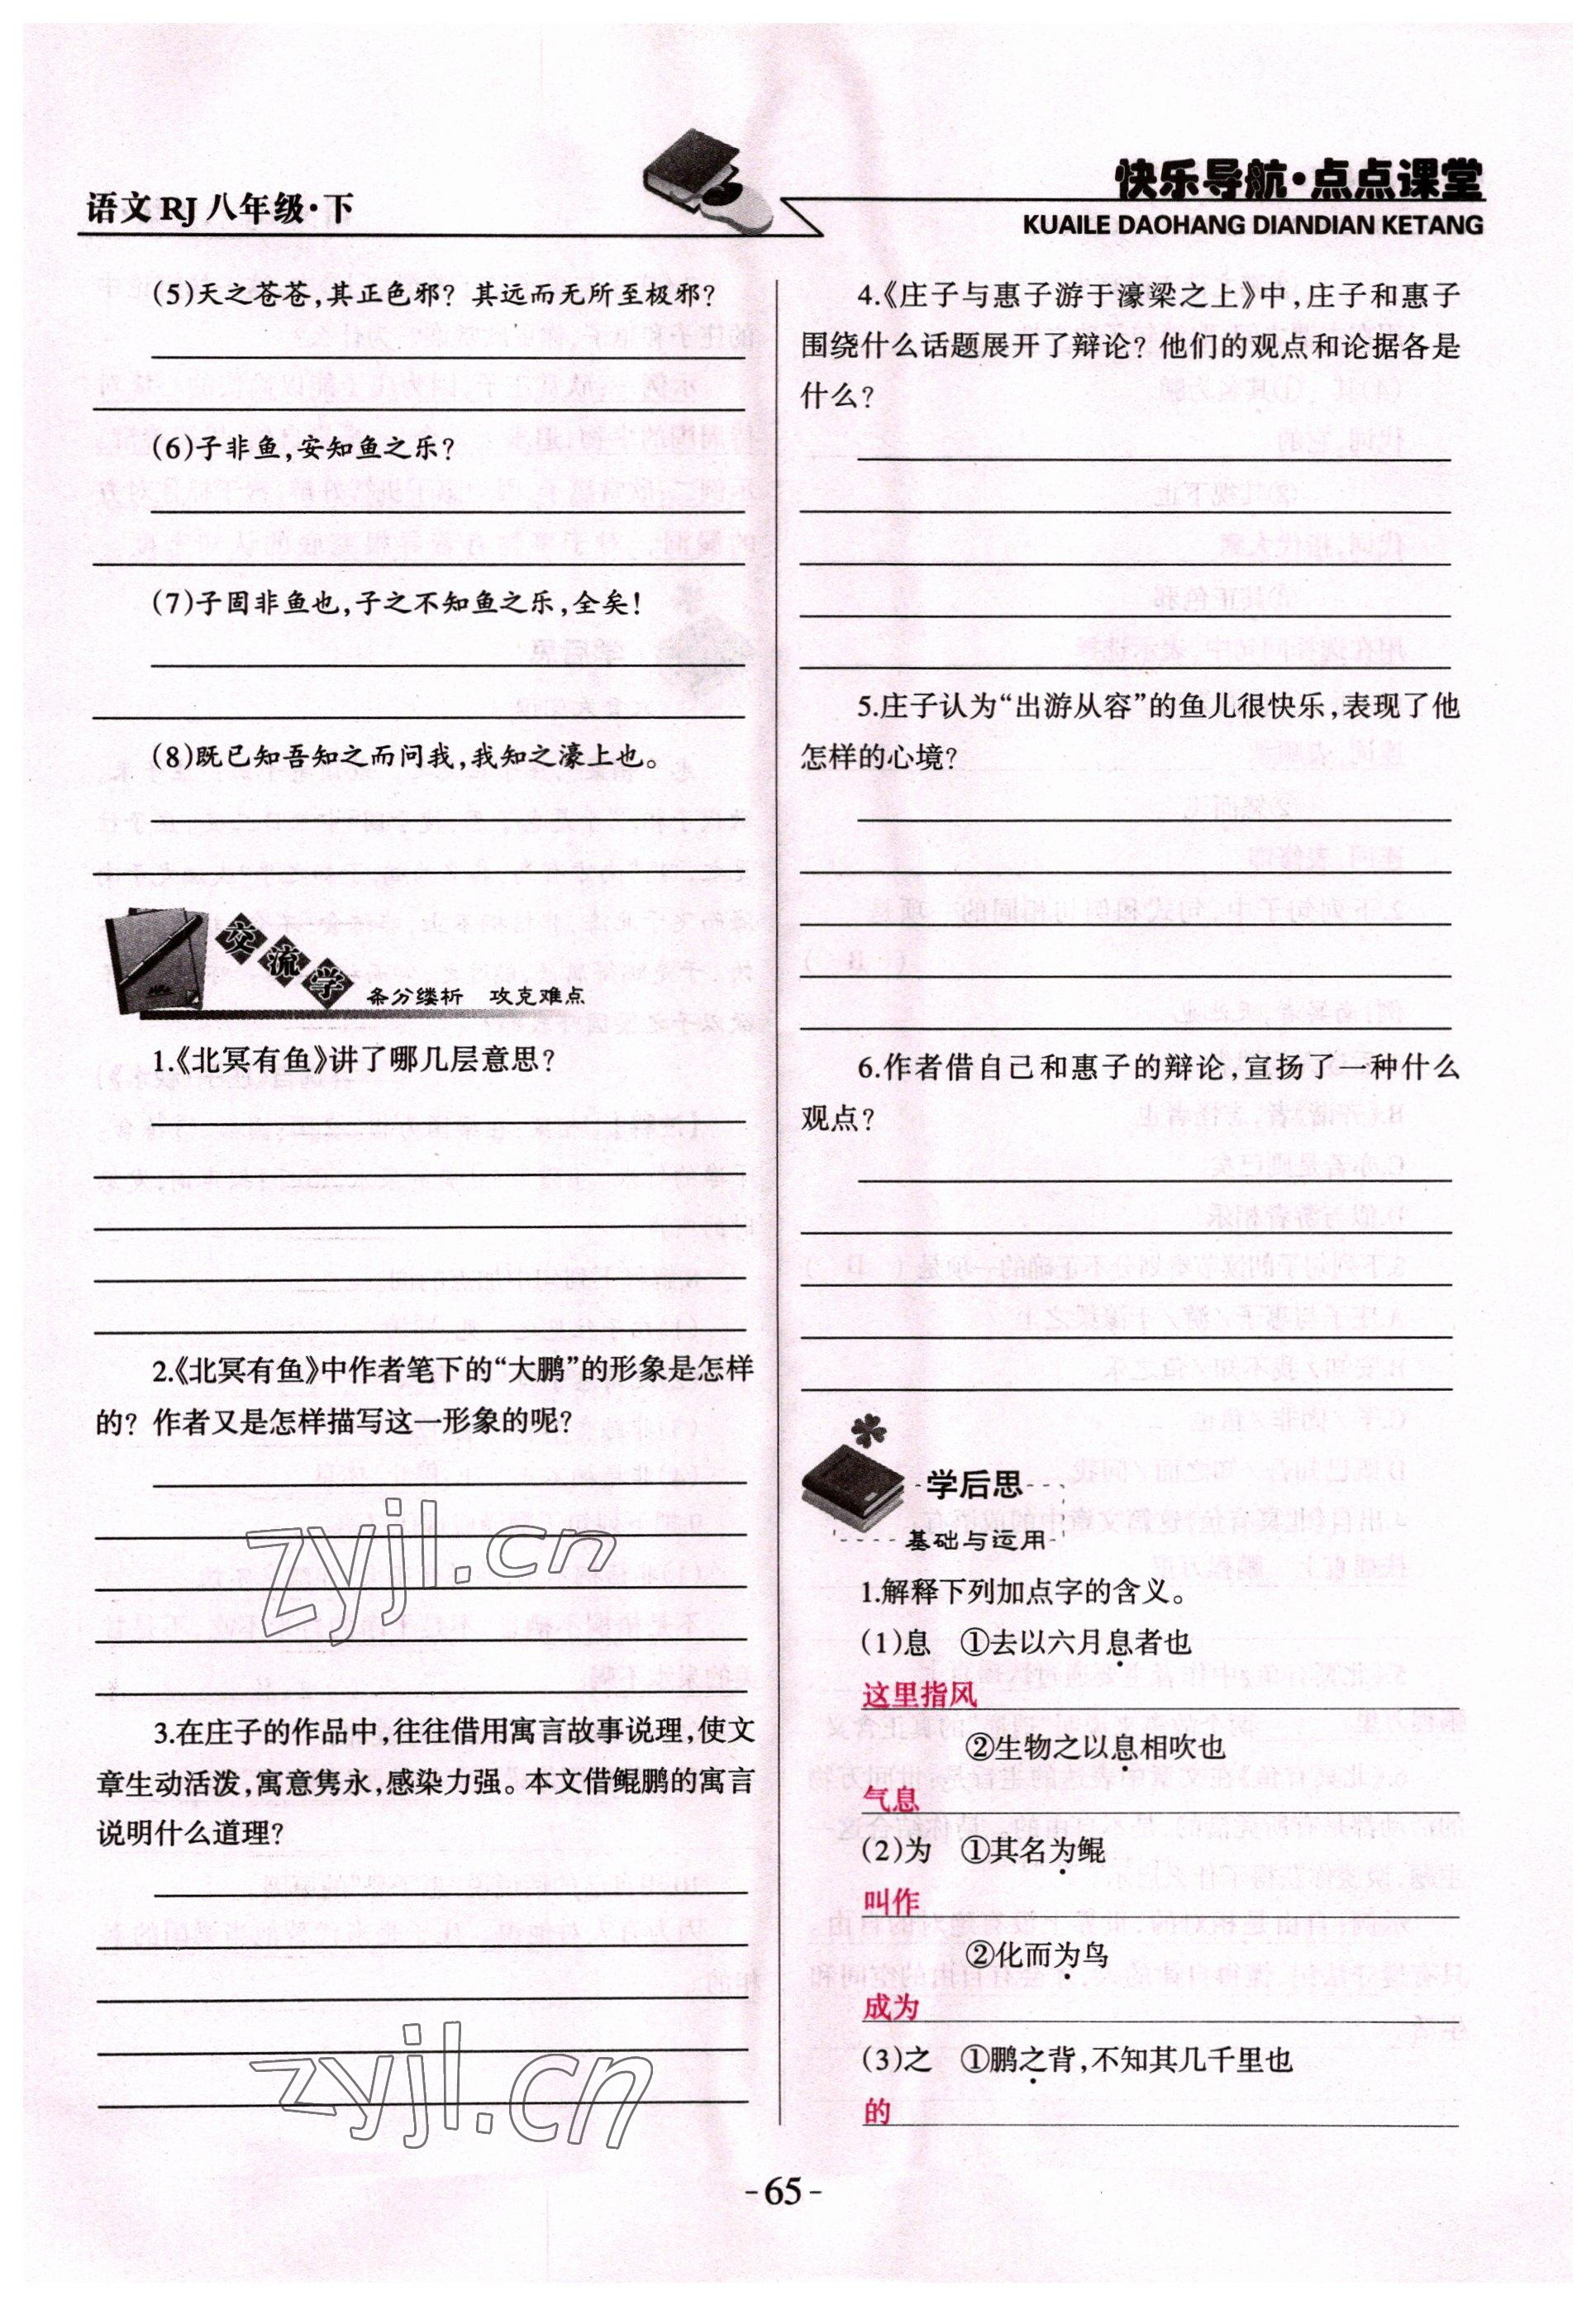 语文RJ八年级·下
快乐导航·点点课堂
KUAILE DAOHANG DIANDIAN KETANG
(5)天之苍苍,其正色邪?其远而无所至极邪?
(6)子非鱼,安知鱼之乐?
(7)子固非鱼也,子之不知鱼之乐,全矣!
(8)既已知吾知之而问我,我知之濠上也。
交流学
条分缕析 攻克难点
1.《北冥有鱼》讲了哪几层意思?
2.《北冥有鱼》中作者笔下的“大鹏”的形象是怎样
的?作者又是怎样描写这一形象的呢?
3.在庄子的作品中,往往借用寓言故事说理,使文
章生动活泼,寓意隽永,感染力强。本文借鲲鹏的寓言
说明什么道理?
4.《庄子与惠子游于濠梁之上》中,庄子和惠子
围绕什么话题展开了辩论?他们的观点和论据各是
什么?
5.庄子认为“出游从容”的鱼儿很快乐,表现了他
怎样的心境?
6.作者借自己和惠子的辩论,宣扬了一种什么
观点?
学后思
基础与运用
1.解释下列加点字的含义。
(1)息 ①去以六月息者也
这里指风
②生物之以息相吹也
气息
(2)为 ①其名为鲲
叫作
②化而为鸟
成为
(3)之 ①鹏之背,不知其几千里也
的
zyjl.cn
zyjl.cn
-65-